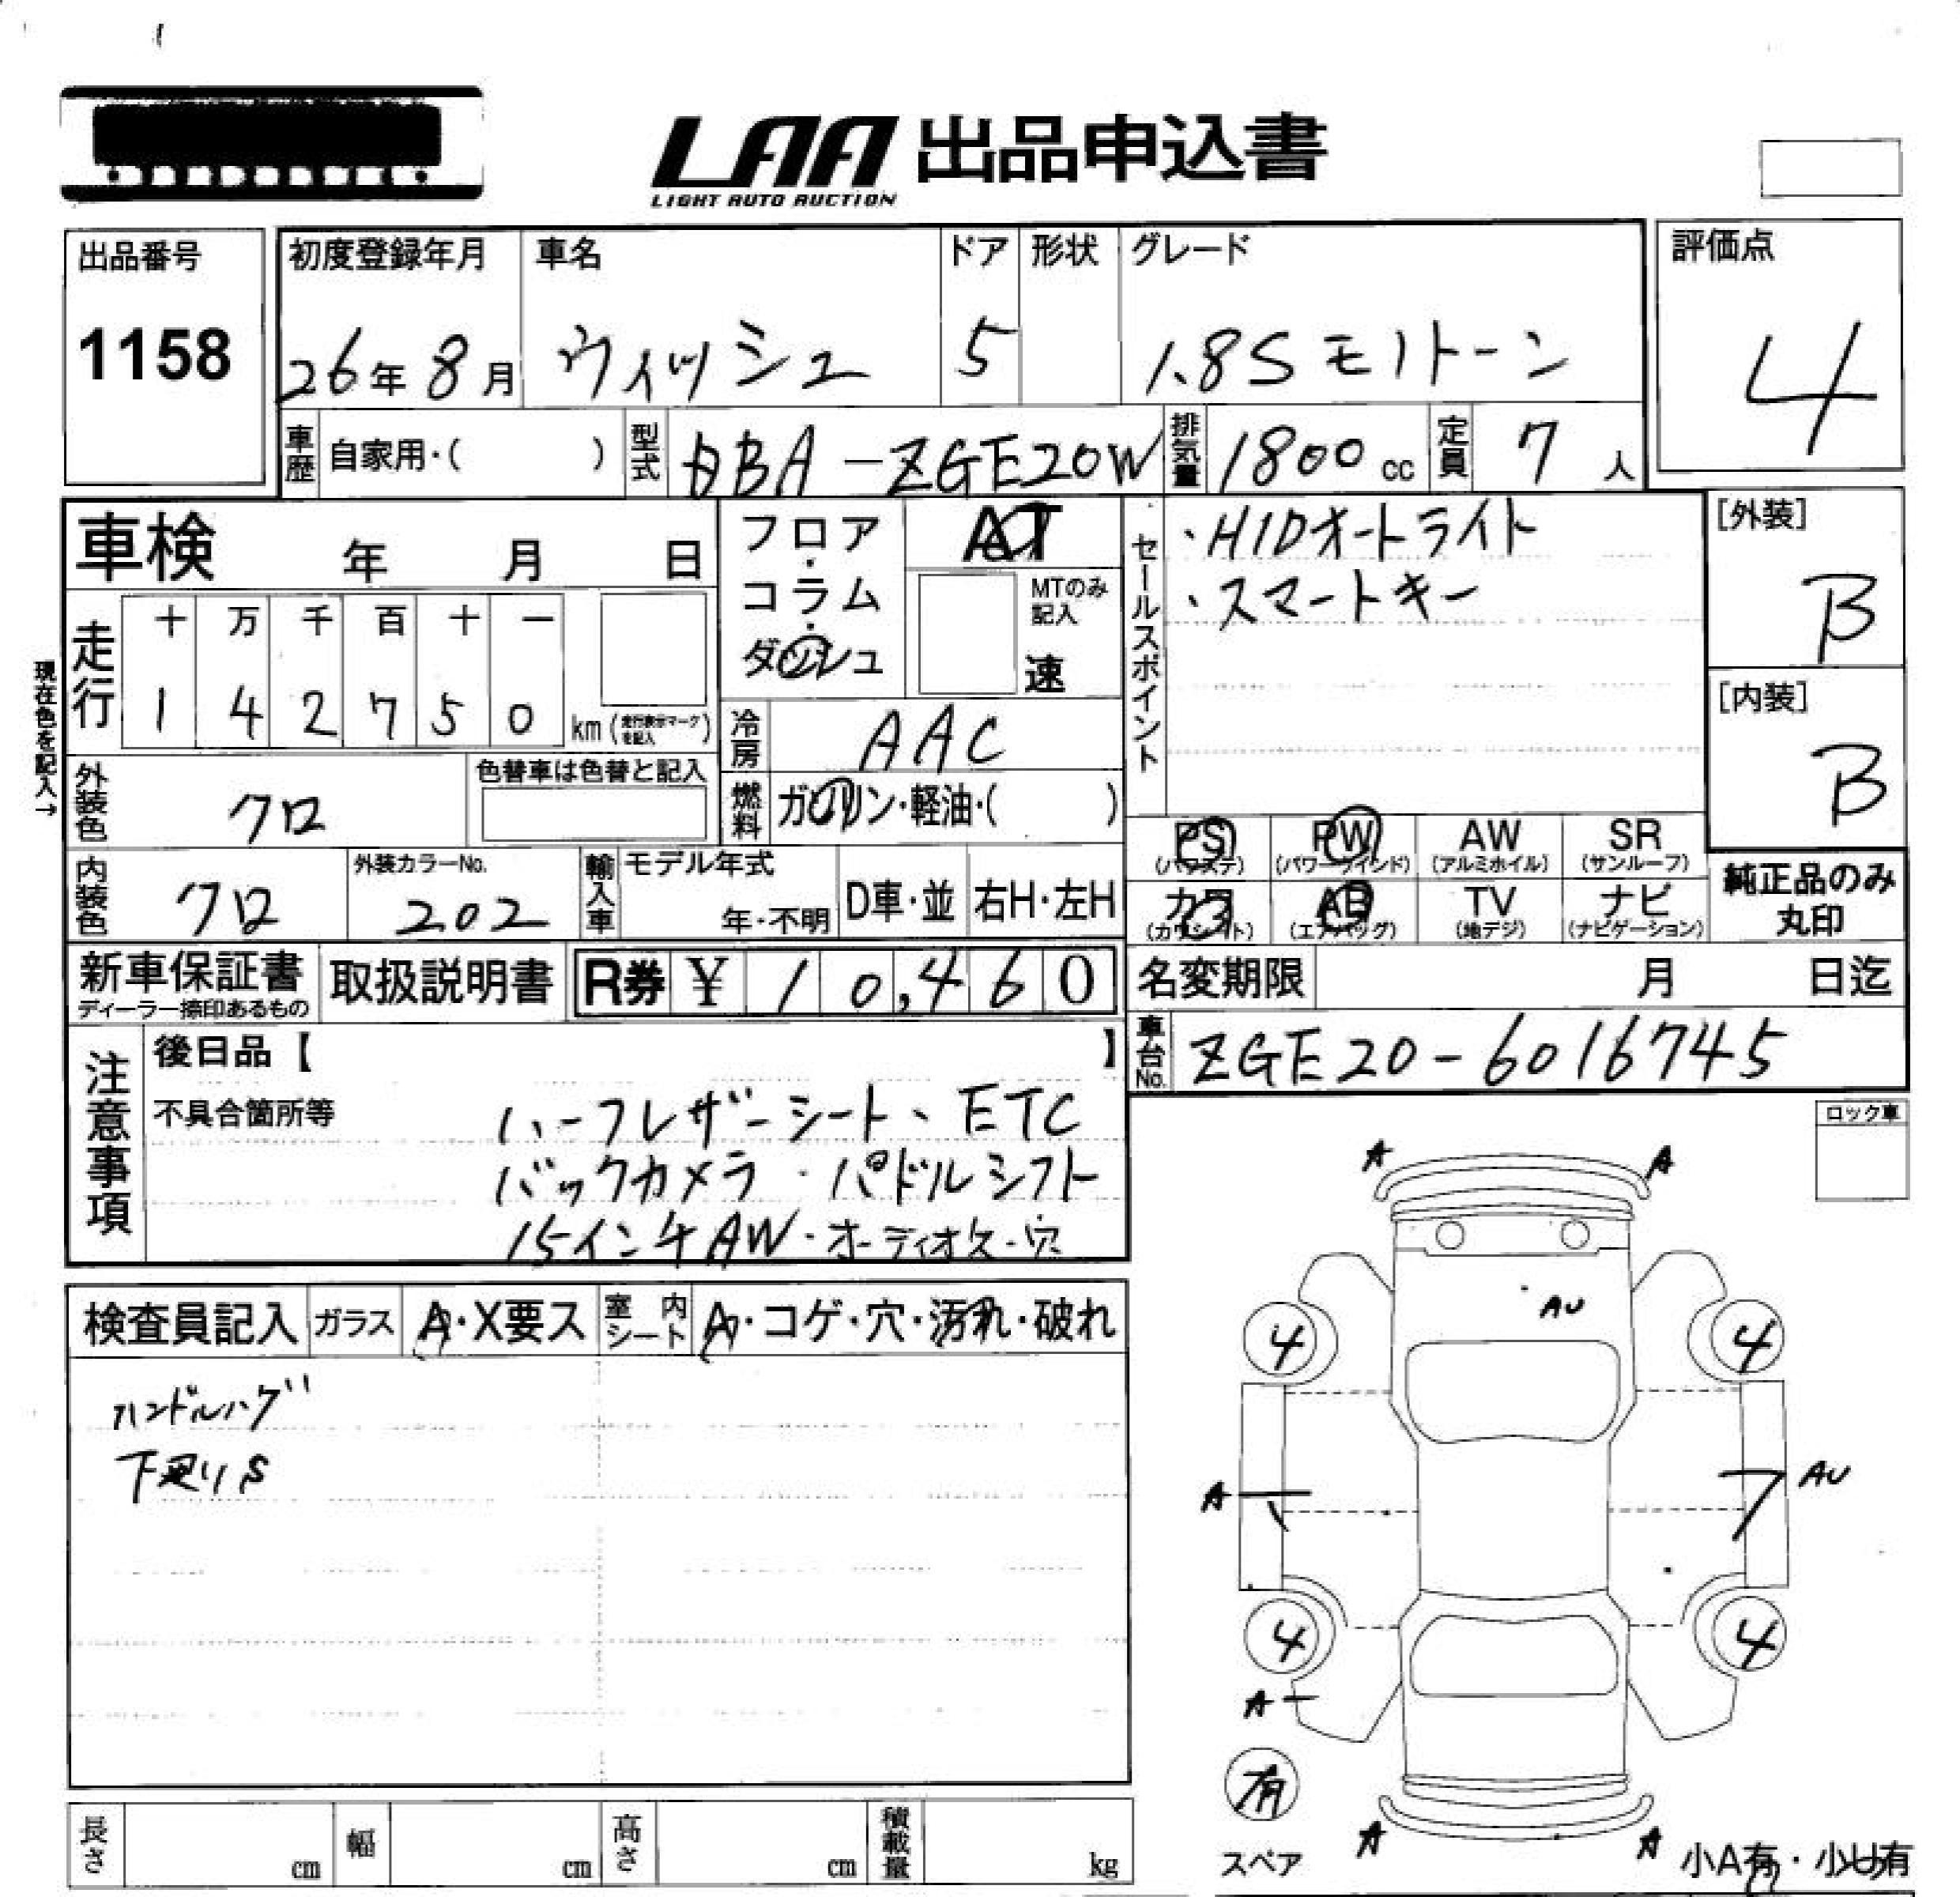 LAA 出品申込書
LIGHT AUTO AUCTION
出品番号
1158
初度登録年月
26年8月
車名
ウィッシュ
ドア
5
形状
グレード
1.8S モノトーン
評価点
4
車歴
自家用・( )
型式
DBA-ZGE20W
排気量
1800 cc
定員
7 人
車検 年 月 日
フロア・コラム・ダッシュ
AT
MTのみ記入
速
セールスポイント
・HIDオートライト
・スマートキー
[外装]
B
[内装]
B
現在色を記入→
走行
十 万 千 百 十 一
1 4 2 7 5 0 km (走行表示マークを記入)
冷房
AAC
燃料
ガソリン・軽油・( )
外装色
クロ
色替車は色替と記入
内装色
クロ
外装カラーNo.
202
輸入車
モデル年式
年・不明
D車・並
右H・左H
PS (パワステ)
PW (パワーウインド)
AW (アルミホイル)
SR (サンルーフ)
カワ (カワシート)
AB (エアバッグ)
TV (地デジ)
ナビ (ナビゲーション)
純正品のみ丸印
新車保証書
ディーラー捺印あるもの
取扱説明書
R券 ¥ 10,460
名変期限 月 日迄
車台No.
ZGE20-6016745
注意事項
後日品【 】
不具合箇所等
ハーフレザーシート、ETC
バックカメラ・パドルシフト
15インチAW・オーディオレス・穴
ロック車
検査員記入
ガラス
A・X要ス
室内シート
A・コゲ・穴・汚れ・破れ
ハンドルハゲ
下廻りS
A A
AU
4 4
A AU
4 4
A
有
スペア
A A
小A有・小U有
長さ cm
幅 cm
高さ cm
積載量 kg